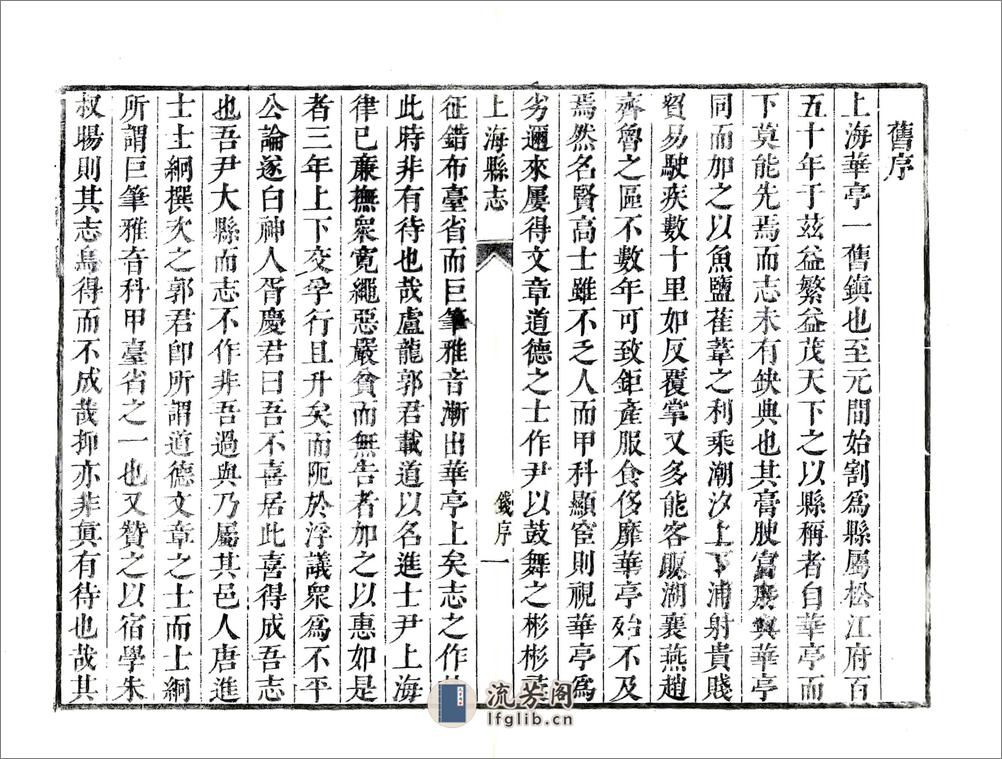 舊序
上海華亭一舊鎮也至元間始割爲縣屬松江府百
五十年于茲益繁益茂天下之以縣稱者自華亭而
下莫能先焉而志未有鈌典也其膏腴富庶與華亭
同而加之以魚鹽萑葦之利乘潮汐上下浦射貴賤
貿易駛疾數十里如反覆掌又多能客販湖襄燕趙
齊魯之區不數年可致鉅產服食侈靡華亭殆不及
焉然名賢高士雖不乏人而甲科顯宦則視華亭爲
劣邇來屢得文章道德之士作尹以鼓舞之彬彬
上海縣志
錢序
一
征錯布臺省而巨筆雅音漸出華亭上矣志之作
此時非有待也哉盧龍郭君載道以名進士尹上海
律已廉撫衆寬繩惡嚴貧而無告者加之以惠如是
者三年上下交孚行且升矣而阨於浮議衆爲不平
公論遂白神人胥慶君曰吾不喜居此喜得成吾志
也吾尹大縣而志不作非吾過與乃屬其邑人唐進
士士綱撰次之郭君卽所謂道德文章之士而士綱
所謂巨筆雅音科甲臺省之一也又贊之以宿學朱
叔暘則其志烏得而不成哉抑亦非眞有待也哉其
流芳阁
lfglib.cn